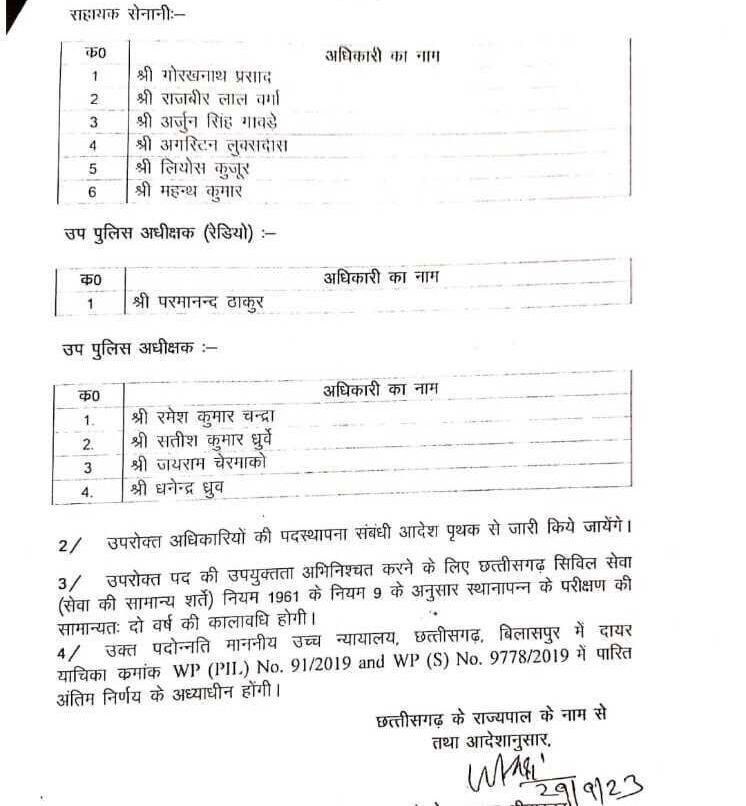 सहायक सेनानीः–
क0 अधिकारी का नाम
1 श्री गोरखनाथ प्रसाद
2 श्री राजबीर लाल वर्मा
3 श्री अर्जुन सिंह गावडे
4 श्री अगस्टिन लुक्सदास
5 श्री लियोस कुजूर
6 श्री महन्थ कुमार
उप पुलिस अधीक्षक (रेडियो) :–
क0 अधिकारी का नाम
1 श्री परमानन्द ठाकुर
उप पुलिस अधीक्षक :–
क0 अधिकारी का नाम
1. श्री रमेश कुमार चन्द्रा
2. श्री सतीश कुमार धुर्वे
3 श्री जयराम चेरमाको
4. श्री धनेन्द्र ध्रुव
2/ उपरोक्त अधिकारियों की पदस्थापना संबंधी आदेश पृथक से जारी किये जायेंगे।
3/ उपरोक्त पद की उपयुक्तता अभिनिश्चत करने के लिए छत्तीसगढ़ सिविल सेवा
(सेवा की सामान्य शर्ते) नियम 1961 के नियम 9 के अनुसार स्थानापन्न के परीक्षण की
सामान्यतः दो वर्ष की कालावधि होगी।
4/ उक्त पदोन्नति माननीय उच्च न्यायालय, छत्तीसगढ़, बिलासपुर में दायर
याचिका कमांक WP (PIL) No. 91/2019 and WP (S) No. 9778/2019 में पारित
अंतिम निर्णय के अध्याधीन होंगी।
छत्तीसगढ़ के राज्यपाल के नाम से
तथा आदेशानुसार,
29/9/23